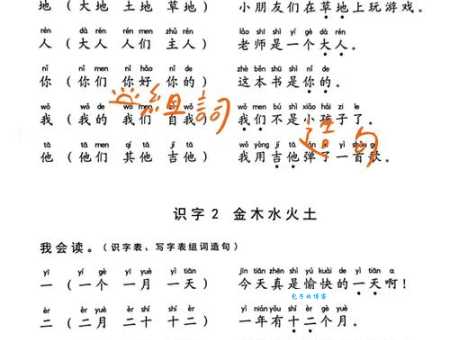 地（大地 土地 草地） 小朋友们在草地上玩游戏。
rén dà rén rén men zhǔ rén lǎo shī shì yí gè dà rén
人（大人 人们 主人） 老师是一个大人。
nǐ nǐ men nǐ hǎo nǐ de zhè běn shū shì nǐ de
你（你们 你好 你的） 这本书是你的。
组词
wǒ wǒ de wǒ men zì wǒ wǒ men bú shì xiǎo hái zi le
我（我的 我们 自我） 我们不是小孩子了。
造句
tā tā men qí tā jí tā wǒ yòng jí tā
他（他们 其他 吉他） 我用吉他弹了一首歌。
识字2 金木水火土
我会读。（识字表、写字表组词造句）
yī yí gè yí yuè yì tiān jīn tiān zhēn shì yú kuài de yì tiān a
一（一个 一月 一天） 今天真是愉快的一天啊！
èr èr yuè èr shí shí èr yì nián yǒu shí èr gè yuè
二（二月 二十 十二） 一年有十二个月。